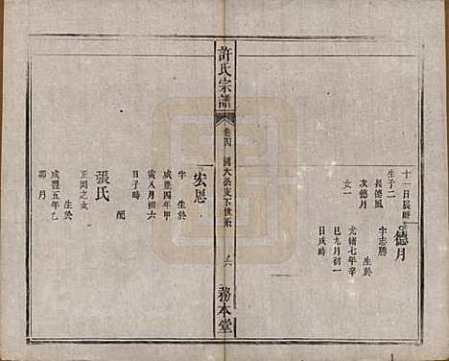 十一日辰時
生子二
長德風
次德月
女一
德月
字志勝
生於
光緒七年辛
巳九月初一
日戌時
許氏宗譜
卷四
六
務本堂
宏恩
字 生於
咸豐四年甲
寅八月初六
日子時
配
張氏
正國之女
生於
咸豐五年乙
卯 月